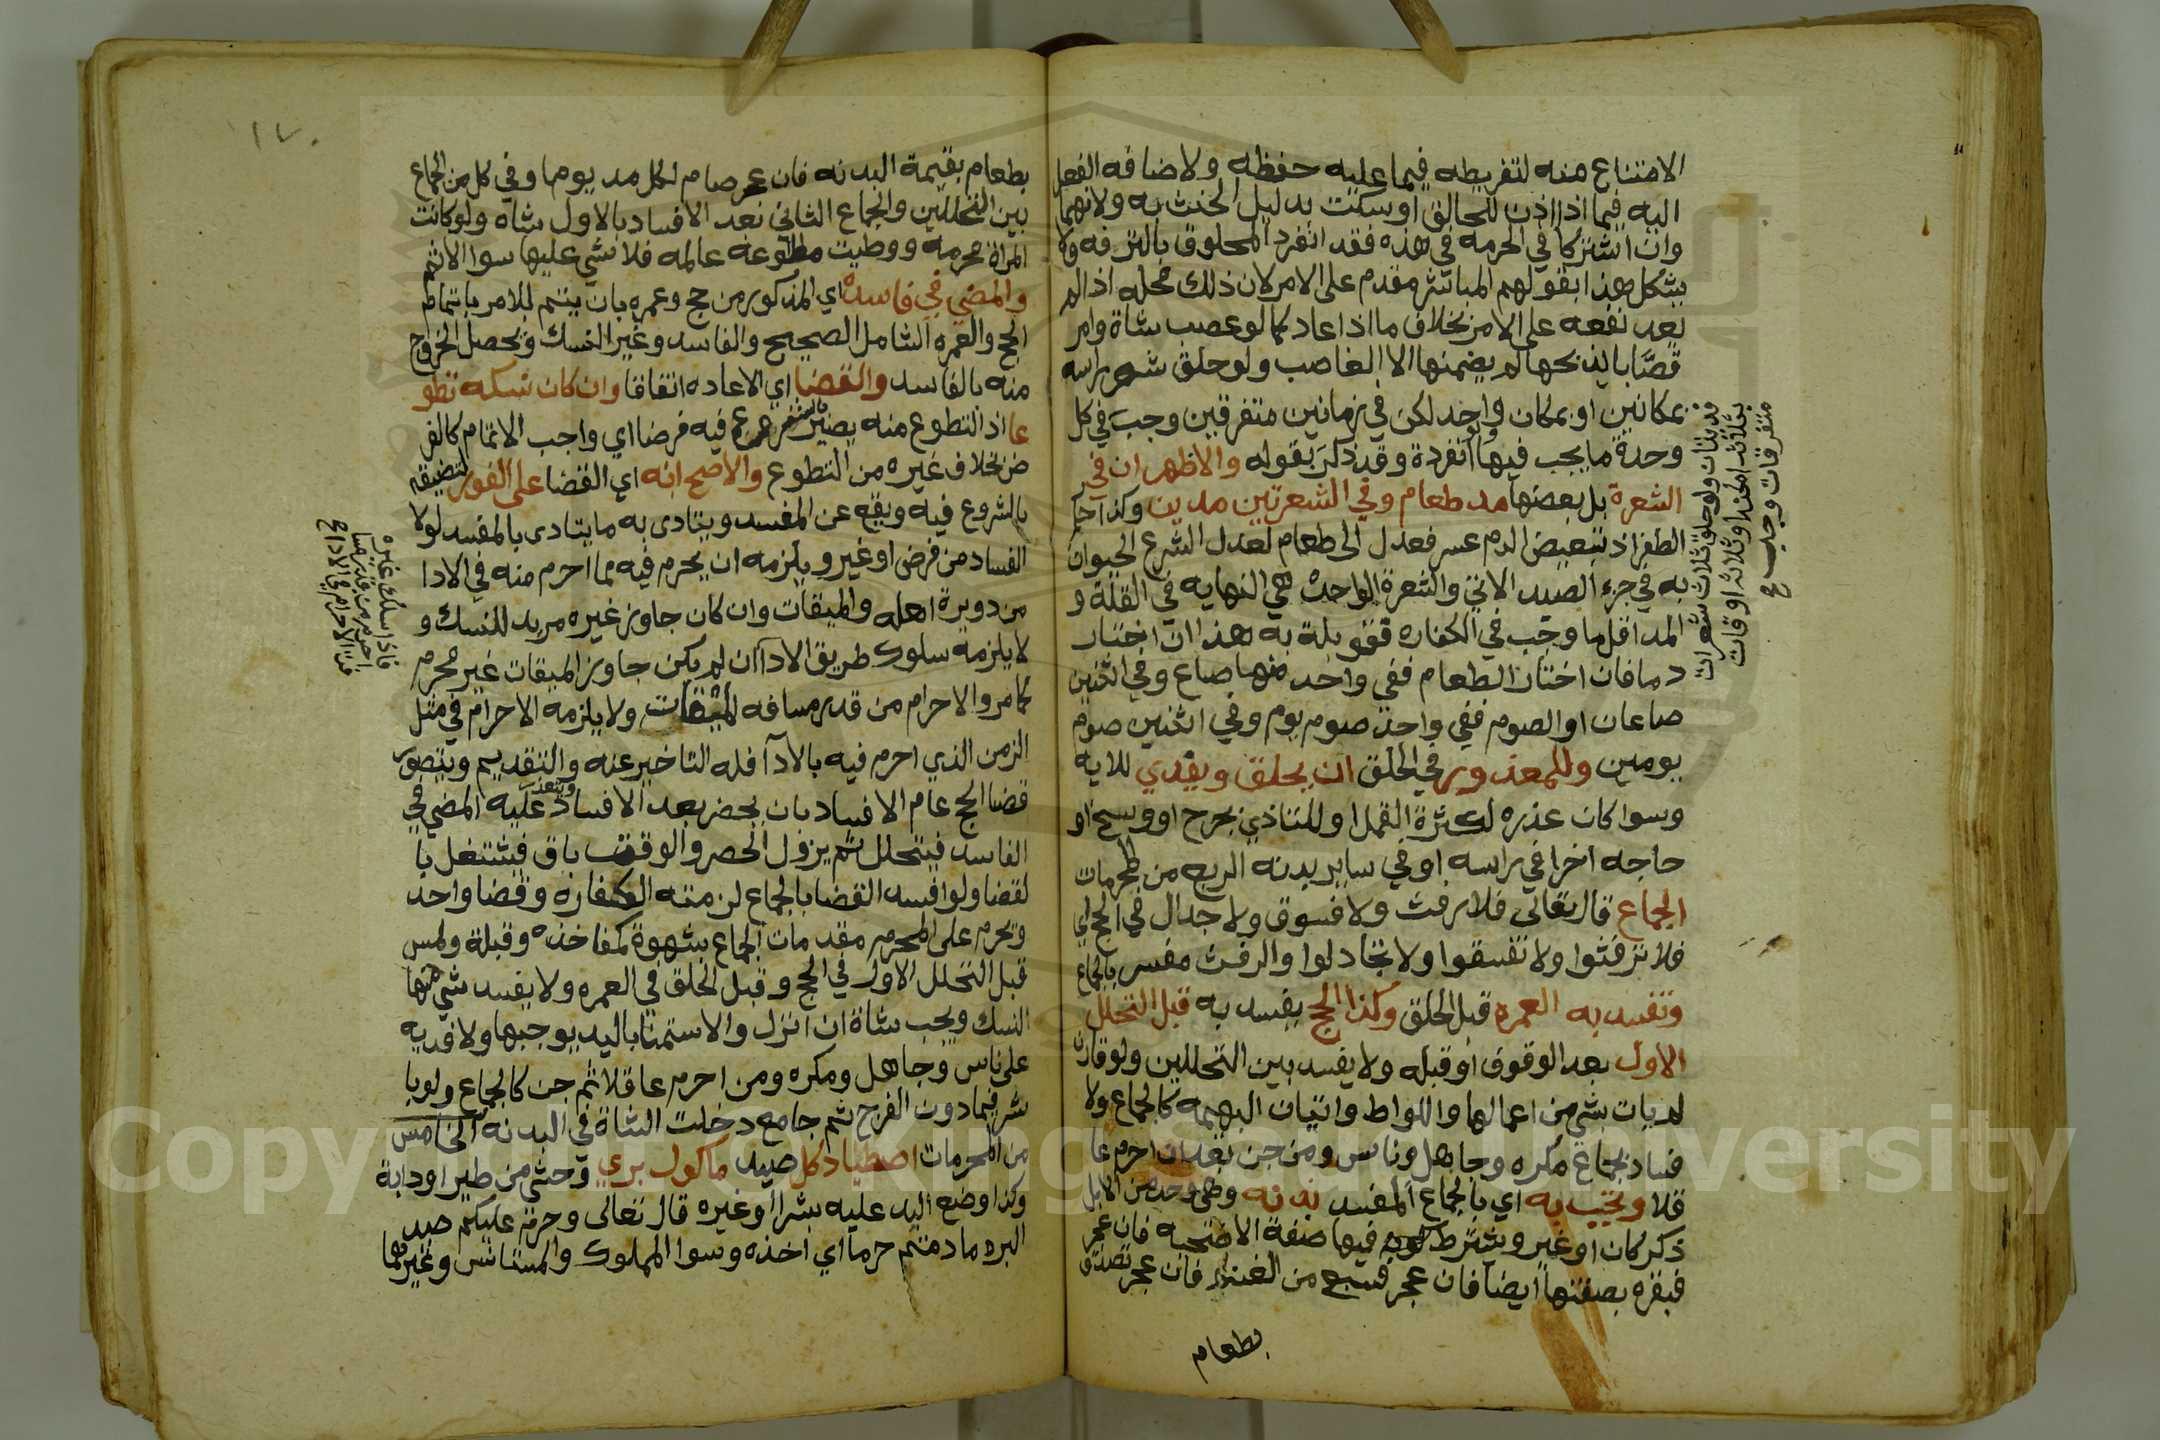 الامتناع منه لتفريطه فيما عليه حفظه ولاضافه الفعل
اليه فيما اذا اذن للحالق او سكت بدليل الحنث به ولانهما
وان اشتركا في الحرمه في هذه فقد انفرد المحلوق بالترفه ولا
يشكل هذا بقولهم المباشر مقدم على الامر لان ذلك محله اذا لم
يعد نفعه على الامر بخلاف ما اذا عاد كما لو غصب شاة وامر
قصابا بذبحها لم يضمنها الا الغاصب ولو حلق شعر راسه
بمكانين او بمكان واحد لكن في زمانين متفرقين وجب في كل
وحدة ما يجب فيها لو انفردة وقد ذكر بقوله والاظهر ان في
الشعرة بل بعضها مد طعام وفي الشعرتين مدين وكذا حكم
الظفر اذ تبعيض الدم عسر فعدل الى طعام لعدل الشرع الحيوان
به في جزء الصيد الاتي والشعرة الواحدة هي النهايه في القلة و
المد اقل ما وجب في الكفاره فقوبلة به هذا ان اختار
دما فان اختار الطعام ففي واحد منها صاع وفي اثنين
صاعان او الصوم ففي واحد صوم يوم وفي اثنين صوم
يومين وللمعذور في الحلق ان يحلق ويفدي للايه
وسوا كان عذره لكثرة القمل او للتاذي بجرح او وسخ او
حاجه اخرا في راسه او في ساير بدنه الربع من المحرمات
الجماع قال تعالى فلا رفث ولا فسوق ولا جدال في الحج اي
فلا ترفثوا ولا تفسقوا ولا تجادلوا والرفث مفسر بالجماع
وتفسد به العمره قبل الحلق وكذا الحج يفسد به قبل التحلل
الاول بعد الوقوف او قبله ولا يفسد بين التحللين ولو قارن
لم يات بشي من اعمالها واللواط واتيان البهيمه كالجماع ولا
فساد بجماع مكره وجاهل وناس ومن جن بعد ان احرم عا
قلا وتجب به اي بالجماع المفسد بدنه وهي وحده من الابل
ذكر كان او غير ويشترط فيها صفة الاضحيه فان عجز
فبقره بصفتها ايضا فان عجز فسبع من الغنم فان عجز تصدق
بطعام
مد بنات ولو حلق ثلاث شعرات
بثلاثه امكنه او ثلاثه اوقات
متفرقات وجب ع
١٧٠
بطعام بقيمة البدنه فان عجز صام لكل مد يوما وفي كل من الجماع
بين التحللين والجماع الثاني بعد الافساد بالاول شاه ولو كانت
المراة محرمه ووطيت مطوعه عالمه فلا شي عليها سوا الاثم
والمضي في فاسده اي المذكور من حج وعمره بان يتم للامر باتمام
الحج والعمره الشامل الصحيح والفاسد وغير النسك يحصل الخروج
منه بالفاسد والقضا اي الاعاده اتفاقا وان كان نسكه تطو
عا اذ التطوع منه يصير بالشروع فيه فرضا اي واجب الاتمام كالفر
ض بخلاف غيره من التطوع والاصح انه اي القضا على الفور لتضيقه
بالشروع فيه ويقع عن المفسد ويتادى به ما يتادى بالمفسد لولا
الفساد من فرض او غير ويلزمه ان يحرم فيه مما احرم منه في الادا
من دويرة اهله والميقات وان كان جاوز غيره مريد للنسك و
لا يلزمه سلوك طريق الادا ان لم يكن جاوز الميقات غير محرم
كما مر والاحرام من قدر مسافه الميقات ولا يلزمه الاحرام في مثل
الزمن الذي احرم فيه بالادا فله التاخير عنه والتقديم ويتصور
قضا الحج عام الافساد بان يحصر بعد الافساد ويتعذر عليه المضي في
الفاسد فيتحلل ثم يزول الحصر والوقت باق فيشتغل با
لقضا ولو افسد القضا بالجماع لزمته الكفاره وقضا واحد
وتحرم على المحرم مقدمات الجماع بشهوة كمفاخذه وقبلة ولمس
قبل التحلل الاول في الحج وقبل الحلق في العمره ولا يفسد شي منها
النسك ويجب شاة ان انزل والاستمنا باليد يوجبها ولا فديه
على ناس وجاهل ومكره ومن احرم عاقلا ثم جن كالجماع ولو با
شر فيما دون الفرج ثم جامع دخلت الشاة في البدنه الخامس
من المحرمات اصطياد كل صيد ماكول بري وحشي من طير او دابة
وكذا وضع اليد عليه بشرا او غيره قال تعالى وحرم عليكم صيد
البر ما دمتم حرما اي اخذه وسوا المملوك والمستانس وغيرهما
فاذا سلك غيره
احرم من قدر مسا
فة الاحرام في الادا ع